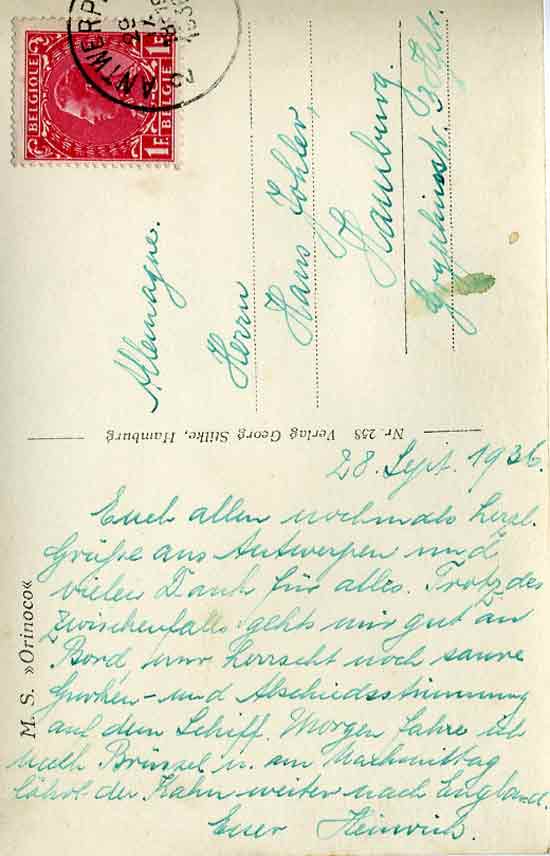 BELGIQUE
1F
BELGIE
1F
ANTWERP
Allemagne.
Herrn
Hans Johler,
Hamburg.
Nr. 258 Verlag Georg Stilke, Hamburg
M. S. »Orinoco«
28. Sept. 1936.
Euch allen nochmals herzl.
Grüße aus Antwerpen und
vielen Dank für alles. Trotz des
Zwischenfalls gehts mir gut an
Bord, nur herrscht noch saure
Gurken- und Abschiedsstimmung
auf dem Schiff. Morgen fahre ich
nach Brüssel u. am Nachmittag
fährt der Kahn weiter nach England.
Euer Heinrich.